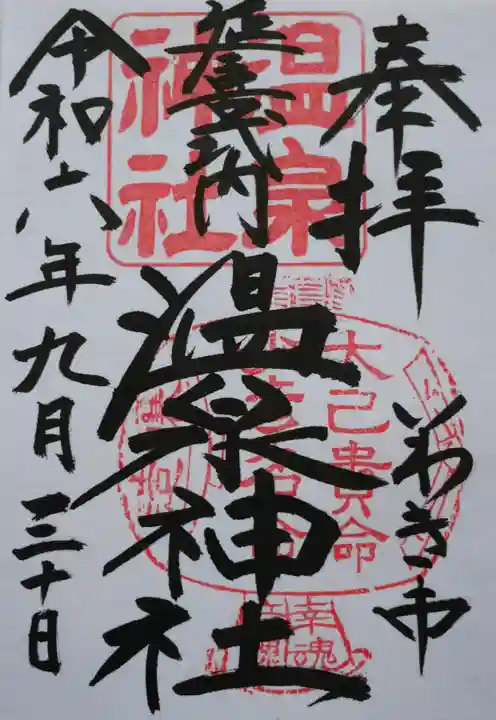 奉拝
いわき市
延喜式内
温泉神社
令和六年九月三十日
温泉
神社
大己貴命
少彦名命
幸魂